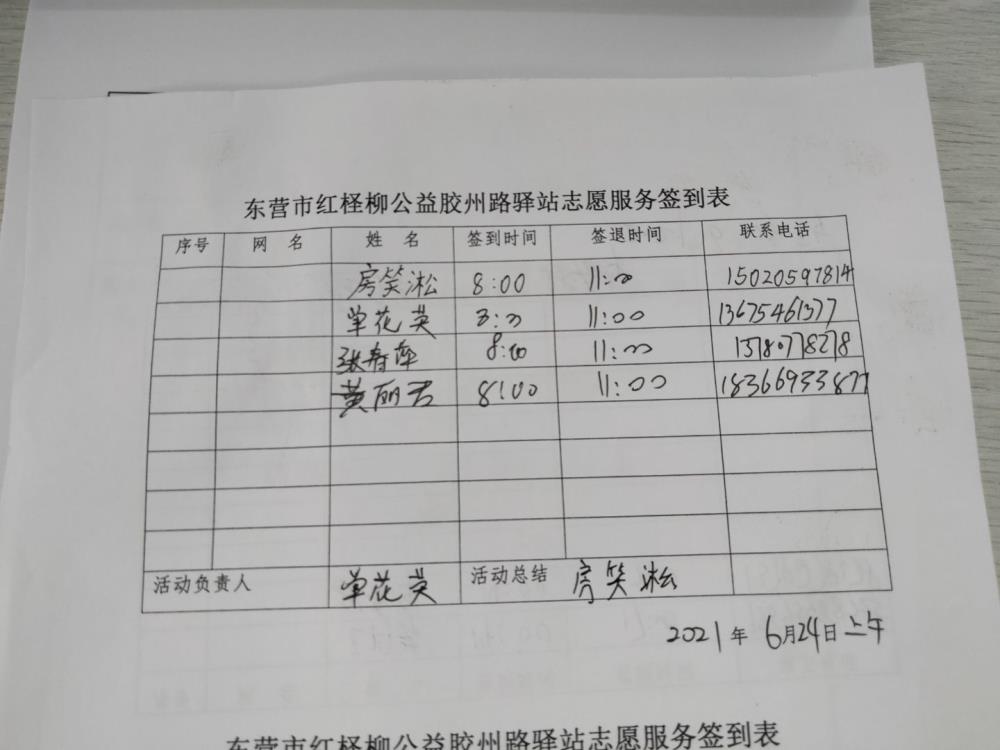 东营市红柽柳公益胶州路驿站志愿服务签到表
序号 网 名 姓 名 签到时间 签退时间 联系电话
房笑淞 8:00 11:00 15020597814
单花英 8:00 11:00 13675461377
张春萍 8:00 11:00 13780778278
黄丽君 8:00 11:00 18366933877
活动负责人 单花英 活动总结 房笑淞
2021年 6月24日上午
东营市红柽柳公益胶州路驿站志愿服务签到表